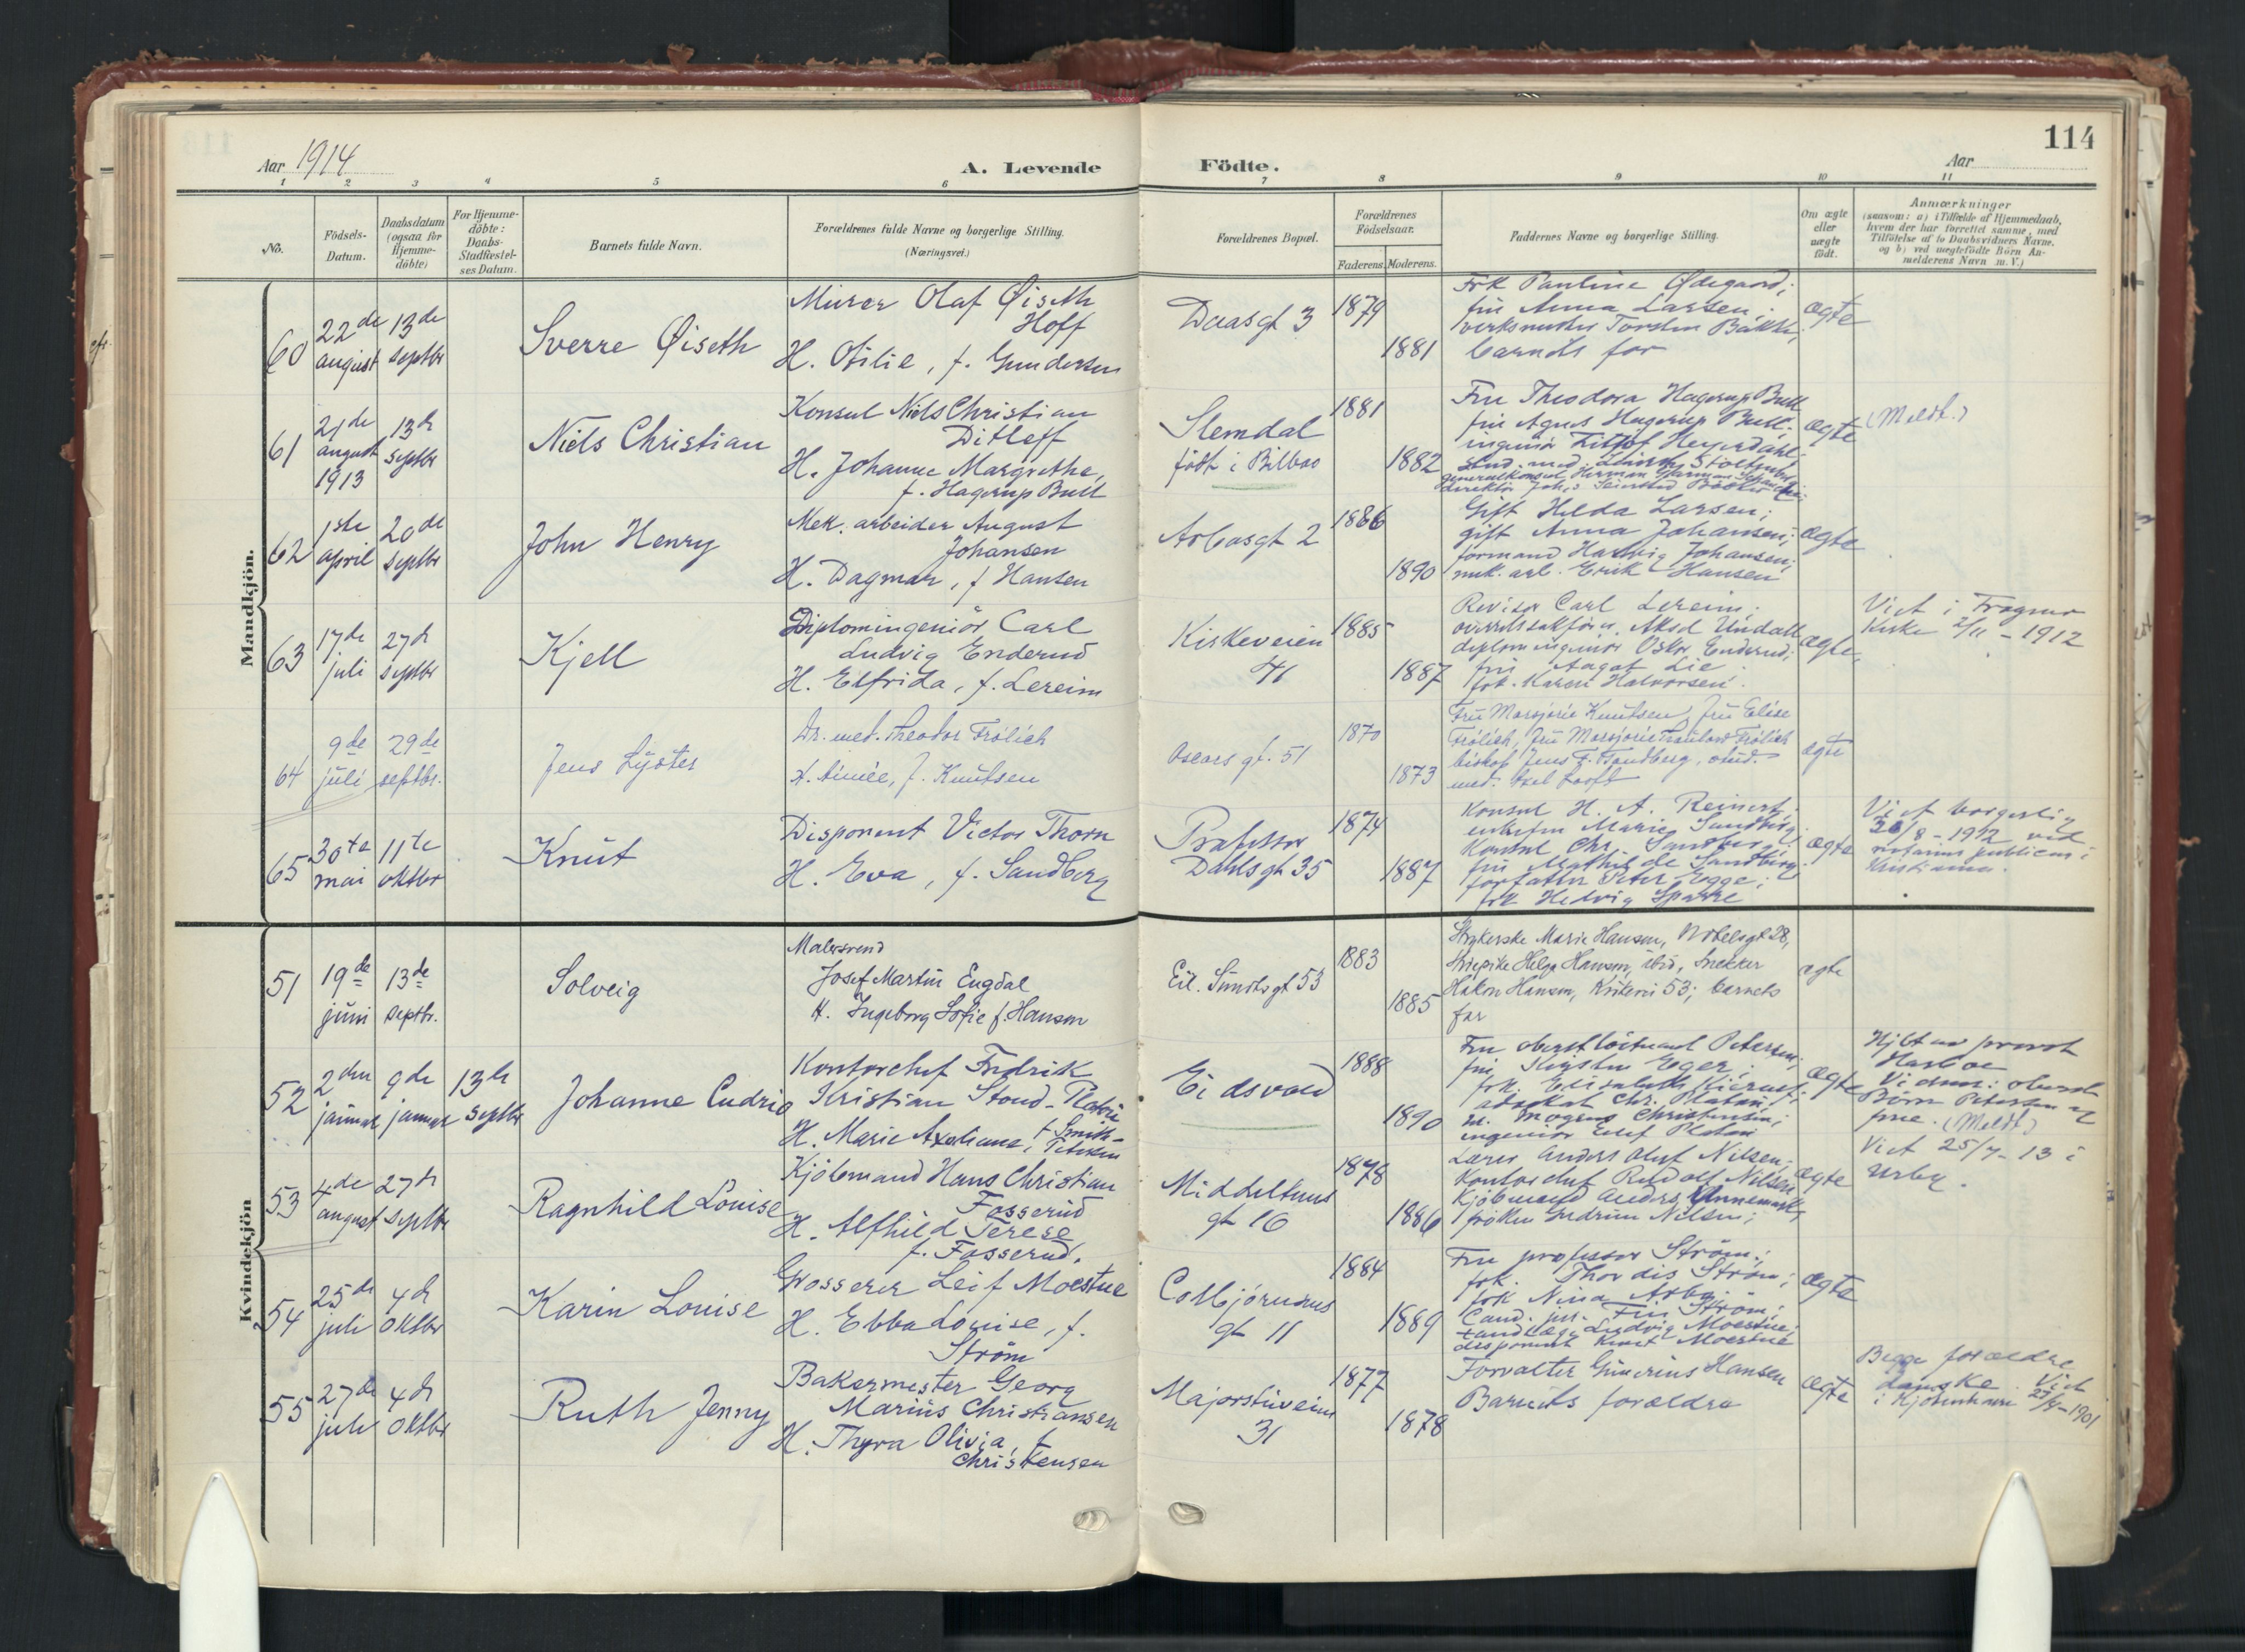 Aar 1914
A. Levende Födte.
Aar
114
1 2 3 4 5 6 7 8 9 10 11
No.
Födsels-
Datum.
Daabsdatum
(ogsaa för
Hjemme-
döbte)
For Hjemme-
döbte:
Daabs-
Stadfæstel-
ses Datum.
Barnets fulde Navn.
Forældrenes fulde Navne og borgerlige Stilling.
(Næringsvei.)
Forældrenes Bopæl.
Forældrenes
Födselsaar.
Faderens. Moderens.
Faddernes Navne og borgerlige Stilling.
Om ægte
eller
uægte
födt.
Anmærkninger
(saasom: a) i Tilfælde af Hjemmedaab,
hvem der har forrettet samme, med
Tilföielse af to Daabsvidners Navne.
og b) ved uægtefödte Börn An-
melderens Navn m. V.)
Mandkjön.
60
22de
august
13de
septbr
Sverre Øiseth
Murer Olaf Øiseth
Hoff
H. Otilie, f. Gundersen
Daasgt 3
1879
1881
Frk Pauline Ødegaard;
fru Anna Larsen;
verksmester Torsten Bakke;
barnets far
ægte
61
21de
august
1913
13de
septbr
Niels Christian
Konsul Niels Christian
Ditleff
H. Johanne Margrethe,
f. Hagerup Bull
Slemdal
født i Bilbao
1881
1882
Fru Theodora Hagerup Bull
fru Agnes Hagerup Bull.
ingeniør Fritjof Heyerdahl
stud. med.
generalkonsul Herman
direktør Johs
ægte
(Meldt.)
62
1ste
april
20de
septbr
John Henry
Mek. arbeider August
Johansen
H. Dagmar, f Hansen
Arbosgt 2
1886
1890
Gift Hilda Larsen;
gift Anna Johansen;
formand Hartvig Johansen;
mek. arb. Erik Hansen
ægte
63
17de
juli
27de
septbr
Kjell
Diplomingeniör Carl
Ludvig Enderud
H. Elfrida, f. Lereim
Kirkeveien
41
1885
1887
Revisor Carl Lereim;
overretssakfører Aksel Undall
diplomingeniør Oskar Enderud;
fru Aagot Lie
frk. Karen Halvorsen.
ægte,
Viet i Frogner
Kirke 2/11 - 1912
64
9de
juli
29de
septbr.
Jens Lyster
Dr. med. Theodor Frölich
H. Aimée, f. Knutsen
Oscars gt. 51
1870
1873
Fru Marsjorie Knutsen, Fru Elise
Frölich, fru Marsjorie Trautow Frölich
biskop Jens F. Tandberg, stud.
med. Axel Tooft
ægte
65
30te
mai
11te
oktbr
Knut
Disponent Victor Thorn
H. Eva, f. Sandberg
Professor
Dahlsgt 35
1874
1887
Konsul H. A. Reinert;
enkefru Marie Sandberg;
Konsul Chr. Sandberg;
fru Mathilde Sandberg;
forfatter Peter Egge;
frk Hedvig Sparre
ægte
Viet borgerlig
/8 - 1912 ved
notarius publicus i
Kristiania.
Kvindekjön
51
19de
juni
13de
septbr.
Solveig
Malersvend
Josef Martin Engdal
H. Ingeborg Sofie f. Hansen
Eil. Sundtsgt 53
1883
1885
Strykerske Marie Hansen, Nobelsgt 28,
Helga Hansen, ibid, Snekker
Håkon Hansen, 53; barnets
far
ægte
52
2den
januar
9de
januar
13de
septbr
Johanne Cudrio
Kontorchef Fredrik
Kristian Stoud-Platou
H. Marie Axeliane, f Smith-
Petersen
Eidsvold
1888
1890
Fru oberstløitnant Petersen;
fru Kirsten Eger;
frk. Elisabeth Kierulf;
advokat Chr. Platou;
hr. Mogens Christensen;
ingeniør Platou
ægte
Hjdt av provst
Harboe
Vidner: oberst
Børn Petersen og
frue. (Meldt)
53
4de
august
27de
septbr
Ragnhild Louise
Kjöbmand Hans Christian
Fosserud
H. Alfhild Terese
f. Fosserud.
Middelthuns
gt 16
1878
1886
Lærer Anders Olaf Nilsen;
Kontorchef Rudolf Nilsen
Kjöbmand Anders Unnemark;
frøken Gudrun Nilsen;
ægte
Viet 25/7 - 13 i
Urbg.
54
25de
juli
4de
oktbr
Karin Louise
Grosserer Leif Moestue
H. Ebba Louise, f.
Ström
Colbjörnsens
gt 11
1884
1889
Fru professor Ström;
frk. Thordis Ström;
frk Nina Arbo;
Cand. jur. Fin Ström;
tandlæge Ludvig Moestue;
disponent Knut Moestue
ægte
55
27de
juli
4de
oktbr
Ruth Jenny
Bakermester Georg
Marius Christiansen
H. Thyra Olivia, f
Christensen
Majorstuveien
31
1877
1878
Forvalter Gunerius Hansen
Barnets forældre
ægte
Begge forældre
danske Viet
i Kjöbenhavn 27/4-1901